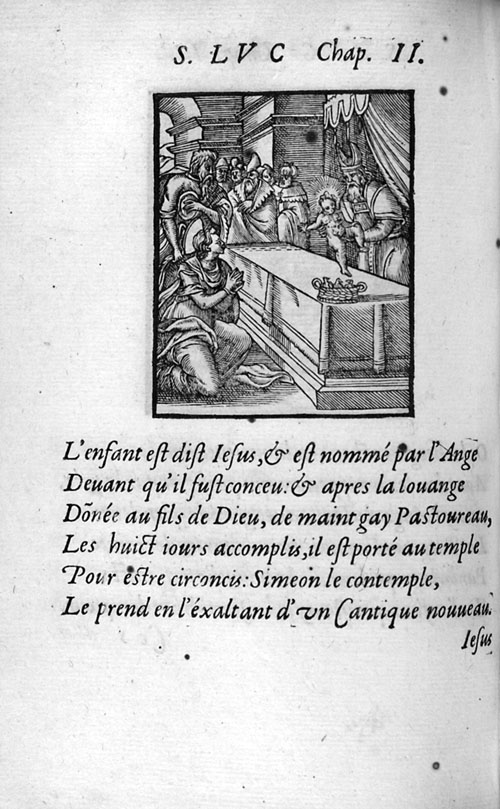 S. LVC Chap. II.
L'enfant est dist Iesus, & est nommé par l'Ange
Deuant qu'il fust conceu: & apres la louange
Dõnée au fils de Dieu, de maint gay Pastoureau,
Les huict iours accomplis, il est porté au temple
Pour estre circoncis: Simeon le contemple,
Le prend en l'éxaltant d'vn Cantique nouueau.
Iesus